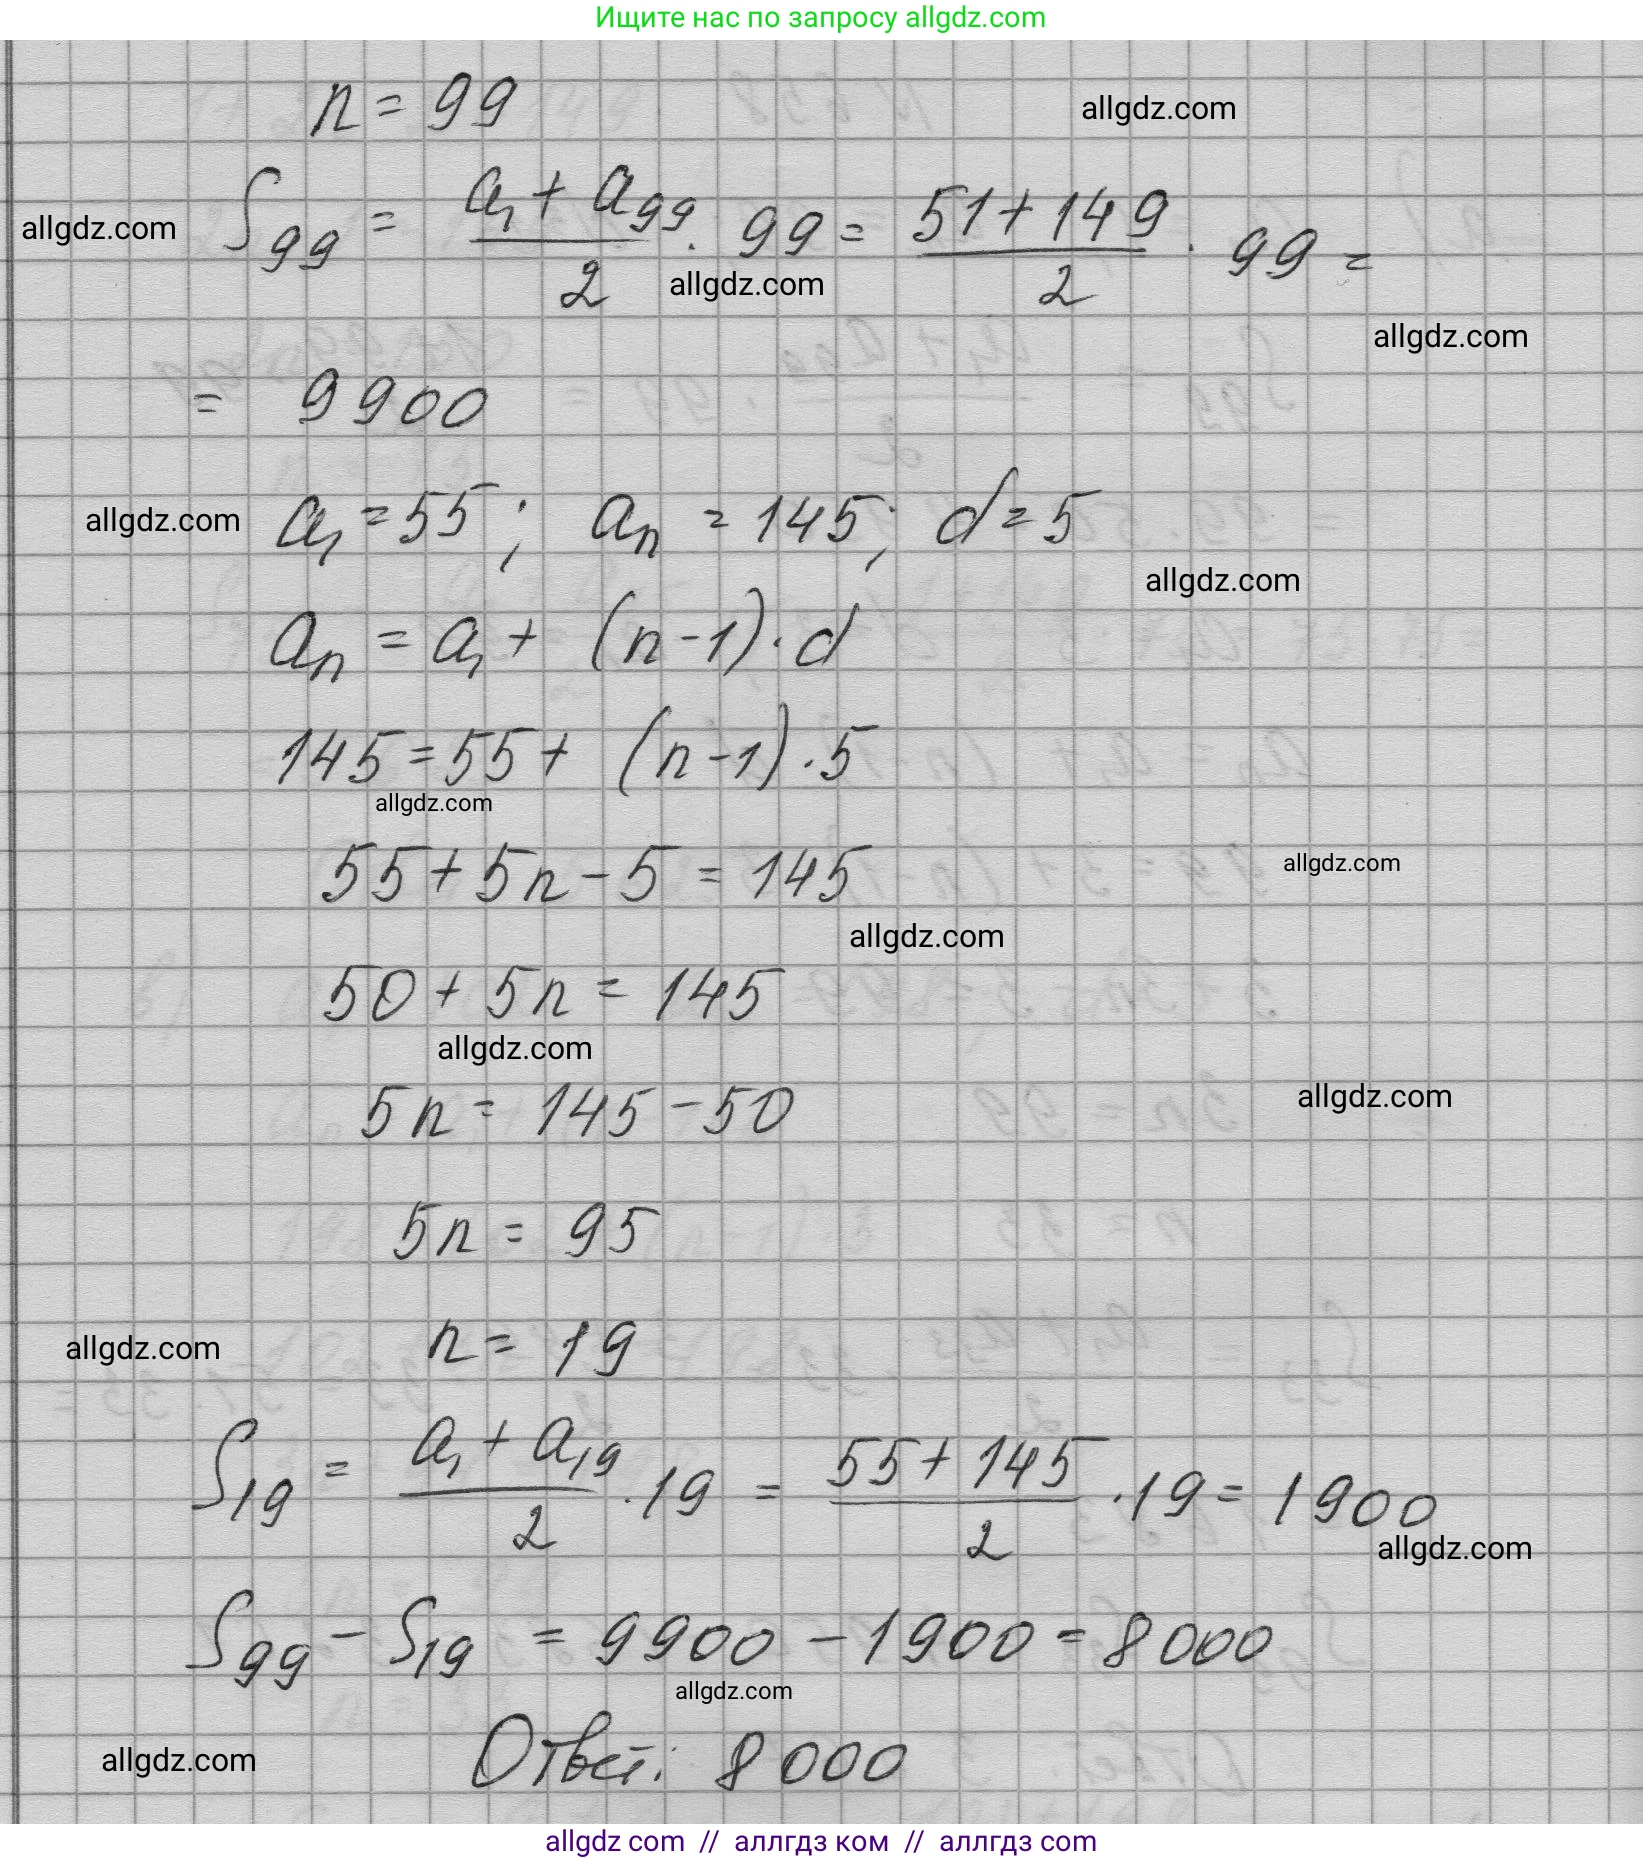 Ищите нас по запросу allgdz.com
n = 99
allgdz.com
allgdz.com
S₉₉ = (a₁ + a₉₉)/2 · 99 = (51 + 149)/2 · 99 =
allgdz.com
allgdz.com
= 9900
allgdz.com
a₁ = 55; aₙ = 145; d = 5
allgdz.com
aₙ = a₁ + (n - 1) · d
145 = 55 + (n - 1) · 5
allgdz.com
55 + 5n - 5 = 145
allgdz.com
allgdz.com
50 + 5n = 145
allgdz.com
5n = 145 - 50
allgdz.com
5n = 95
n = 19
allgdz.com
S₁₉ = (a₁ + a₁₉)/2 · 19 = (55 + 145)/2 · 19 = 1900
allgdz.com
S₉₉ - S₁₉ = 9900 - 1900 = 8000
allgdz.com
Ответ: 8000
allgdz.com
allgdz com // аллгдз ком // аллгдз com